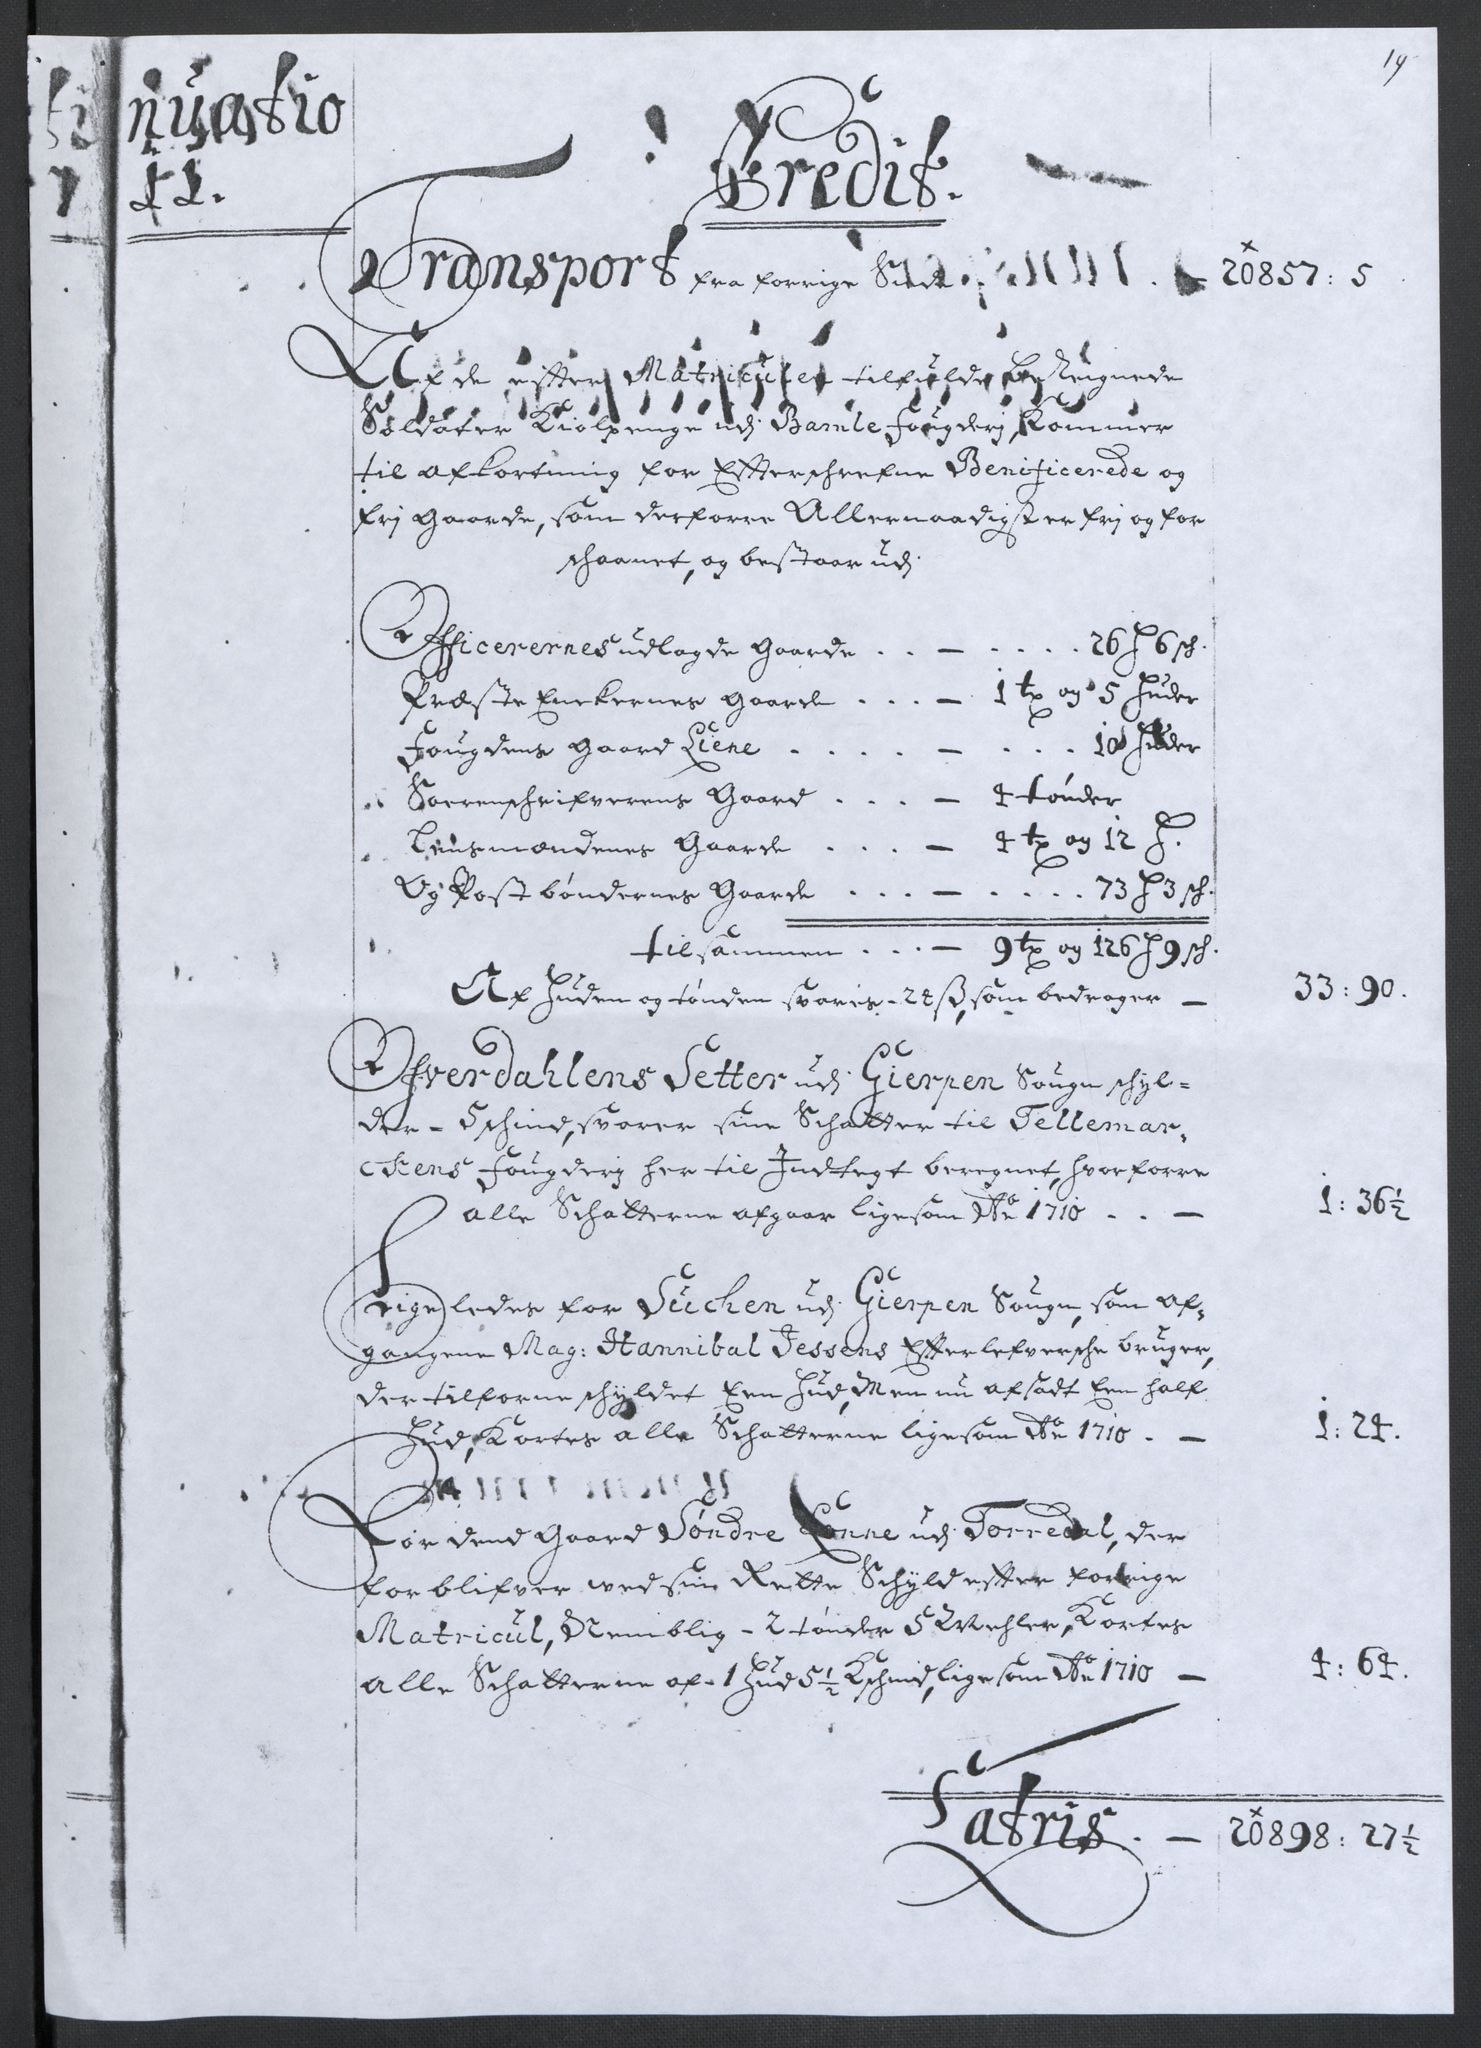 19
nuatio
11.
Credit.
Transport fra forrige Side . — 20857: 5
Af de effter Matriculen tilfulde Bereignede
Soldater Kiolpenge udj Bamle fougderj, Kommer
til afkortning for Effterschrefne Benificerede og
frj Gaarde, som derforre Allernaadigst er frj og for
schaanet, og bestaar udj
Officerernes udlagde Gaarde . . — . . . . 26 H 6 sch.
Præste Enckernes Gaarde . . . — 1 tp og 5 Huder
Fougdens Gaard Liene . . . . — . . . 10 Huder
Sorenschrifverens Gaard . . . — 4 tønder
Lensmændenes Gaarde . . . — 4 tp og 12 H.
Og Post bøndernes Gaarde . . . — . . . . 73 H 3 sch.
tilsammen . . . — 9 tp og 126 H 9 sch.
Af Huden og tønden svaris - 24 ß, som bedrager — 33: 90.
Ofverdahlens Setter udj Gierpen Sougn schyl=
der - 5 schind, svarer sine Schatter til Tellemar,
ckens fougderj her til Indtegt beregnet, hvorforre
alle Schatterne afgaar ligesom Ao 1710 . . — 1: 36½
Lige ledes for Suchen udj Gierpen Sougn, som af,
gangene Mag: Hannibal Jessens Effterlefversche bruger,
der tilforne schyldet Een Hud, Men nu afsadt Een half
Hud, Kortes alle Schatterne ligesom Ao 1710 . — 1: 24.
For dend Gaard Søndre Lønne udj Torredal, der
forblifver wed sin Rette Schyld effter forrige
Matricul, Nemblig - 2 tønder 5 Mehler, Kortes
alle Schatterne af - 1 Hud 5½ Kschind, ligesom Ao 1710 — 4: 64.
Latris. — 20898: 27½